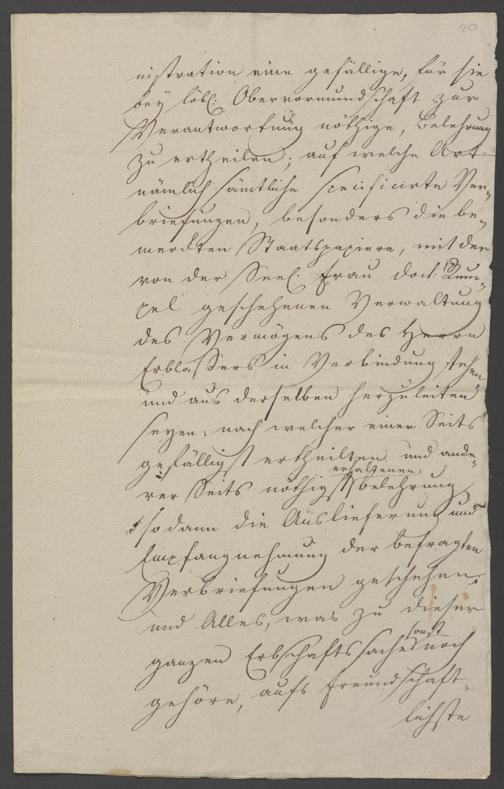 20
nistration eine gefällige, für sie
bey löbl: Obervormundschaft zur
Verantwortung nöthige, Belehrung
zu ertheilen; auf welche Art
nämlich sämtliche specificirte Ver-
briefungen, besonders die be-
merckten Staatspapiere, mit der
von der Seel. Frau Doct:
pel geschehenen Verwaltung
des Vermögens des Herrn
Erblassers in Verbindung stehen
und aus derselben herzuleiten
seyen: nach welcher einer Seits
gefälligst ertheilten und ande-
rer Seits nöthigst erhaltenen Belehrung
sodann die Auslieferung und
Empfangnehmung der befragten
Verbriefungen geschehen,
und Alles, was zu dieser
ganzen Erbschaftssache sonst noch
gehöre, aufs freundschaft-
lichste